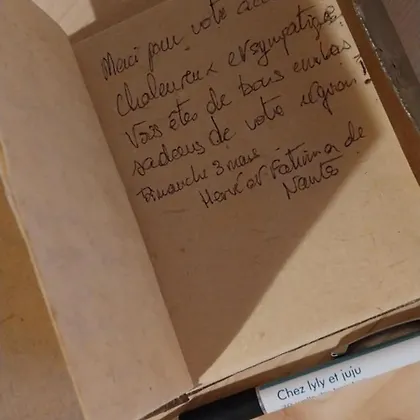 Merci pour votre acc
chaleureux et sympathique
Vous êtes de bons ambas
sadeurs de votre région !
Dimanche 3 mars
Hervé et Fatima de
Nantes
Chez lyly et juju